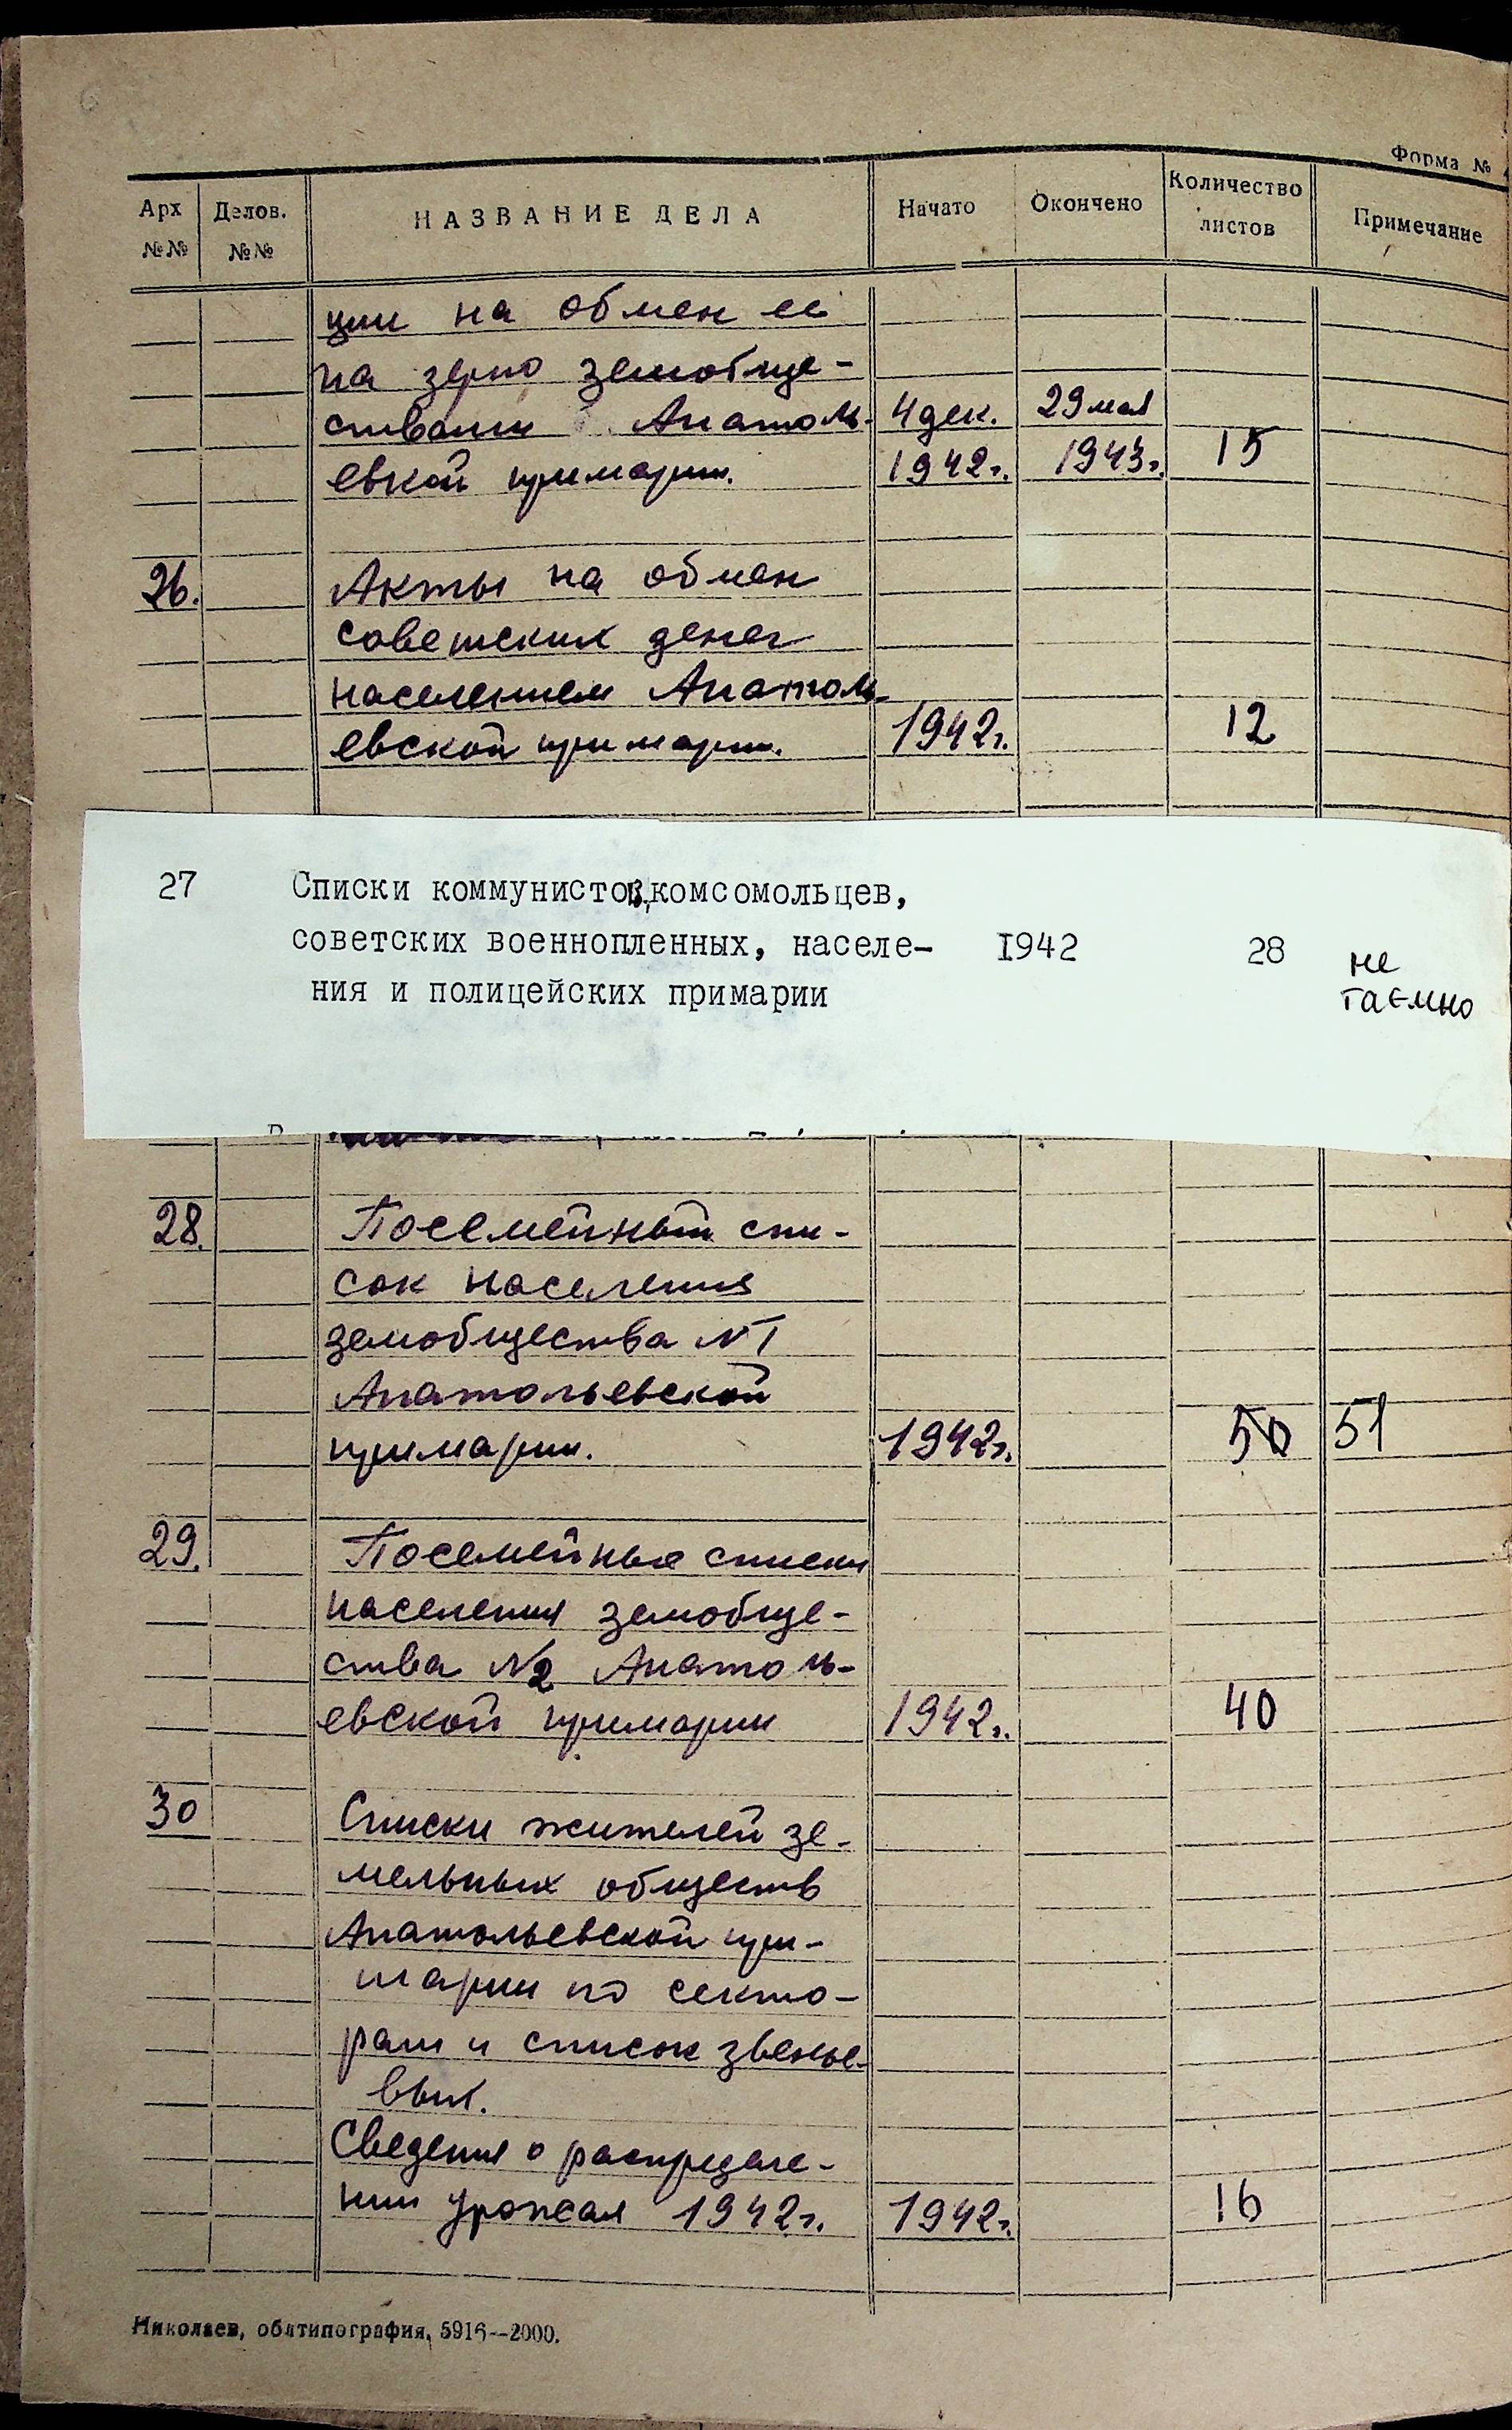 Форма №
Арх №№ Делов. №№ НАЗВАНИЕ ДЕЛА Начато Окончено Количество листов Примечание
ции на обмен ее
на зерно земобще-
ствами Анатоль- 4 дек. 29 мая
евкой примарии. 1942г. 1943г. 15
26. Акты на обмен
советских денег
населением Анатоль-
евской примарии. 1942г. 12
27 Списки коммунистов,комсомольцев,
советских военнопленных, населе- I942 28 не
ния и полицейских примарии таємно
28. Посемейный спи-
сок населения
земобщества №1
Анатольевской
примарии. 1942г. 50 51
29. Посемейные списки
населения земобще-
ства №2 Анатоль-
евской примарии 1942г. 40
30 Списки жителей зе-
мельных обществ
Анатольевской при-
марии по секто-
рам и список звенье-
вых.
Сведения о распределе-
нии урожая 1942г. 1942г. 16
Николаев, облтипография, 5916--2000.